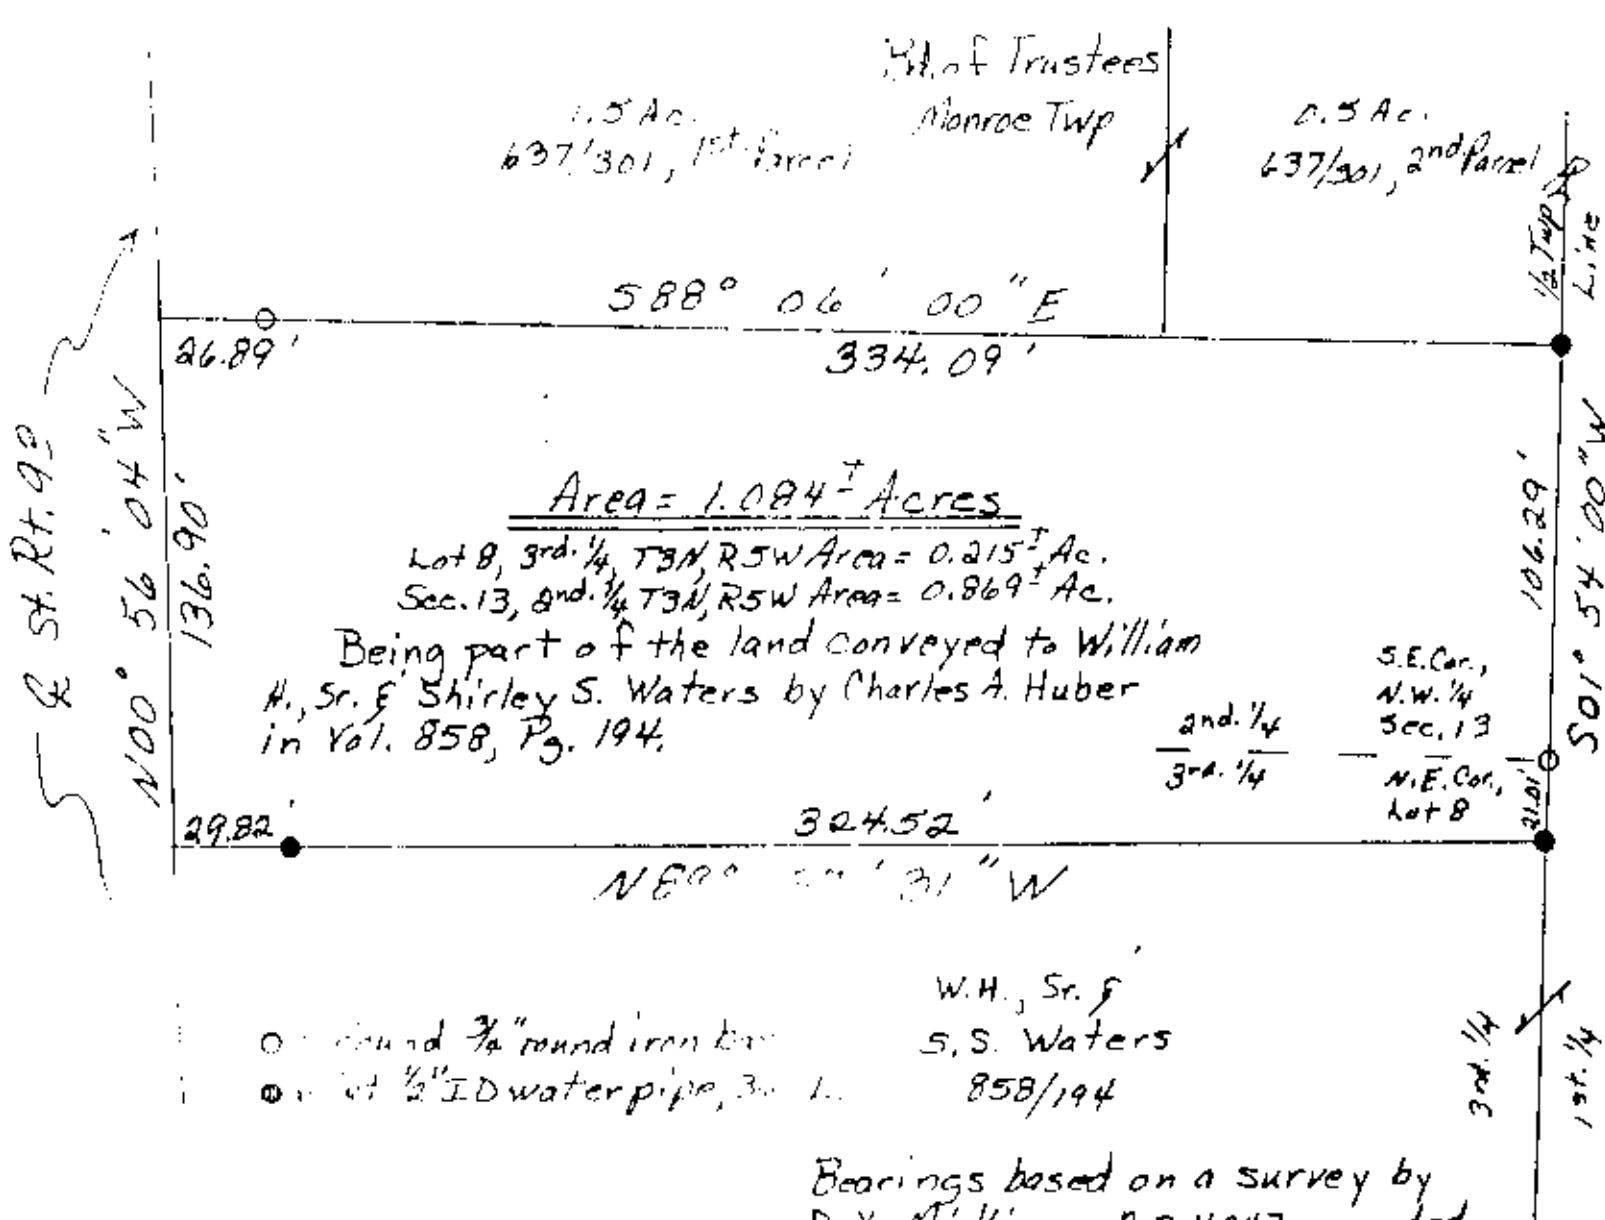 Bd. of Trustees
Monroe Twp
1.5 Ac.
637/301, 1st. Parcel
0.5 Ac.
637/301, 2nd Parcel
1/2 Twp
Line
S88° 06' 00" E
26.89'
334.09'
℄ St. Rt.
N00° 56' 04" W
136.90'
106.29'
S01° 54' 00" W
Area = 1.084± Acres
Lot 8, 3rd. 1/4, T3N, R5W Area = 0.215± Ac.
Sec. 13, 2nd. 1/4 T3N, R5W Area = 0.869± Ac.
Being part of the land conveyed to William
H., Sr. & Shirley S. Waters by Charles A. Huber
in Vol. 858, Pg. 194.
S.E. Cor.,
N.W. 1/4
Sec. 13
2nd. 1/4
3rd. 1/4
N.E. Cor.,
Lot 8
21.01'
29.82'
324.52'
31" W
W.H., Sr. &
S.S. Waters
858/194
3/4" round iron bar
1/2" ID water pipe,
3rd. 1/4
1st. 1/4
Bearings based on a survey by